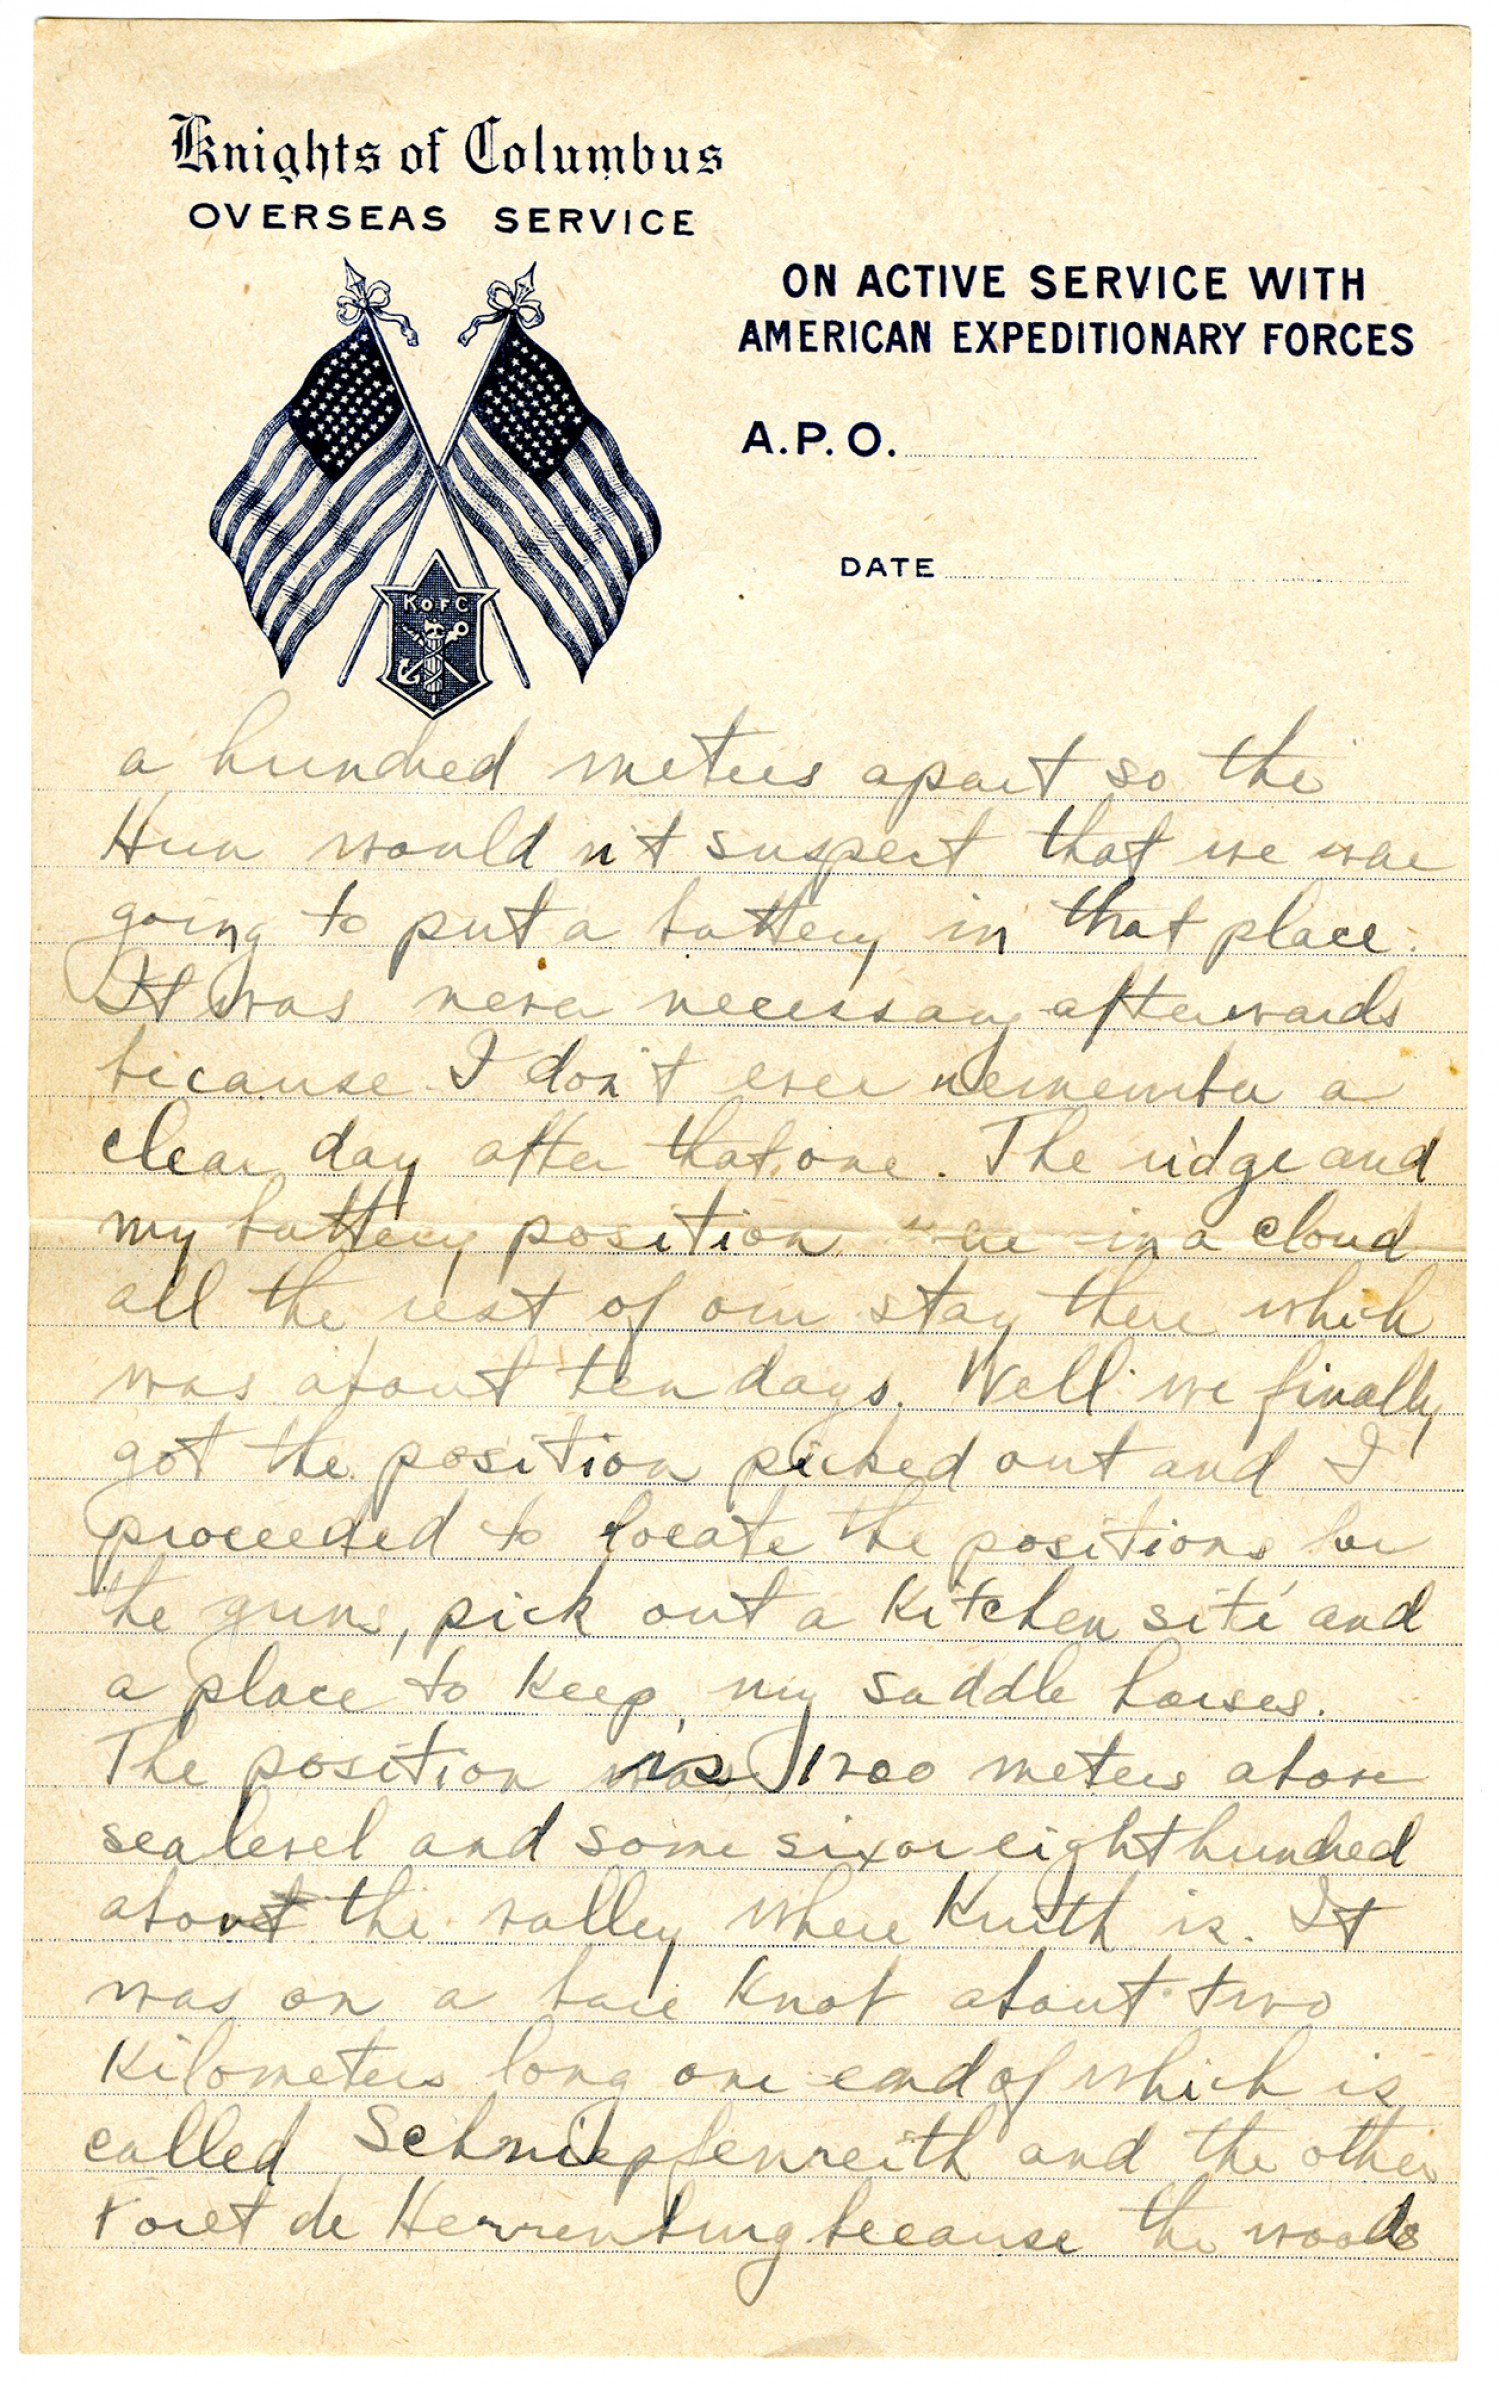 Knights of Columbus
OVERSEAS SERVICE
ON ACTIVE SERVICE WITH
AMERICAN EXPEDITIONARY FORCES
A.P.O.
DATE
K OF C
a hundred meters apart so the
Hun would n't suspect that we were
going to put a battery in that place.
It was never necessary afterwards
because I don't ever remember a
clear day after that one. The ridge and
my battery position were in a cloud
all the rest of our stay there which
was about ten days. Well we finally
got the position picked out and I
proceeded to locate the positions for
the guns, pick out a kitchen site and
a place to keep my saddle horses.
The position is 1200 meters above
sea level and some six or eight hundred
above the valley where Kruth is. It
was on a bare knob about two
kilometers long one end of which is
called Schniepfenreith and the other
Foret de Herrenburg because the woods